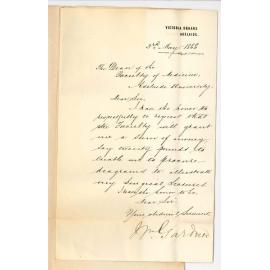 VICTORIA SQUARE
ADELAIDE.
3rd May 1888
The Dean of the
Faculty of Medicine,
Adelaide University.
Dear Sir,
I have the honor
respectfully to request that
the Faculty will grant
me a sum of money
say twenty pounds to
enable me to procure
diagrams to illustrate
my Surgical Lectures
I have the honor to be
Dear Sir
Your obedient Servant
Wm Gardner